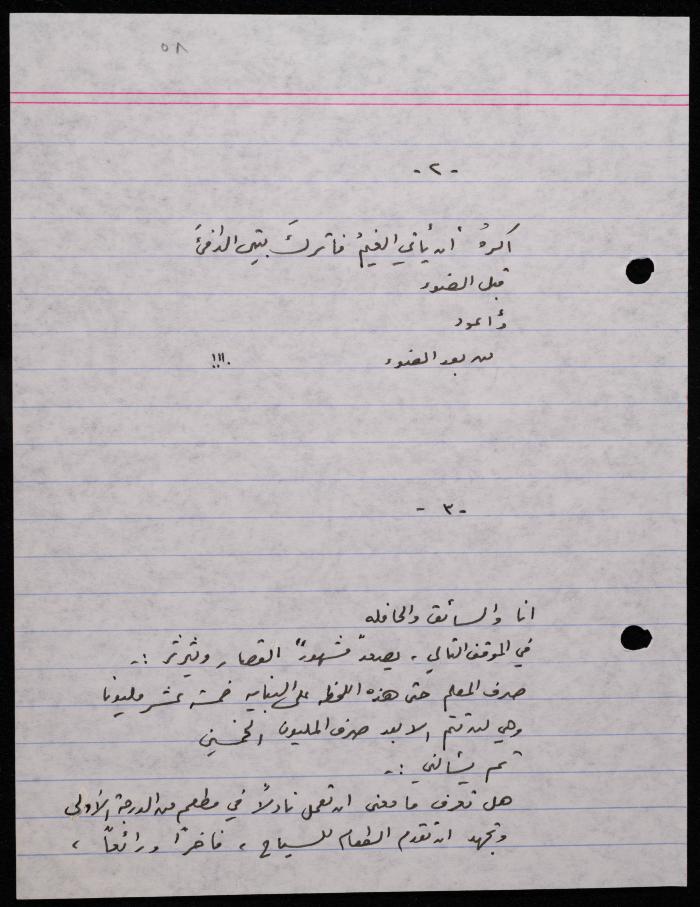 ٥٨
- ٢ -
اكرهُ أن يأتي الغيمُ فأتركَ بيتي الدافئَ
قبل الضوء
وأعود
من بعد الضوء !!!.
- ٣ -
انا والسائق والحافله
في الموقف التالي ، يصعد القصار ويثرثر :-
صرف المعلم حتى هذه اللحظه على البنايه خمسة عشر مليونا
وهي لن تتم الا بعد صرف المليون الخمسين
ثم يسألني :-
هل تعرف ما معنى ان تعمل نادلاً في مطعم من الدرجة الأولى
وتجهد ان تقدم الطعام للسياح ، فاخراً ورائعاً ،